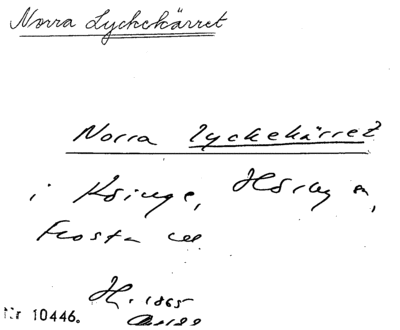 Norra Lyckekärret
Norra Lyckekärret
i Hörby sn,
Frosta
H. 1865
Nr 10446.